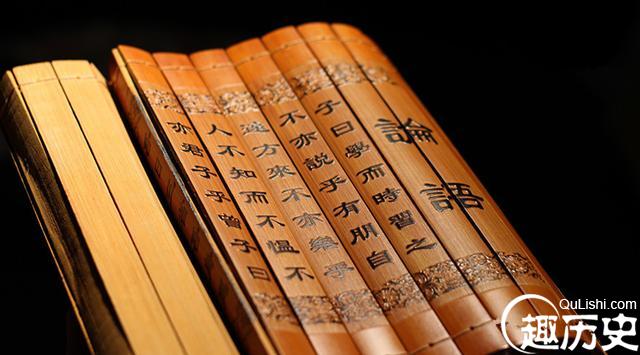 論語
子曰學而時習之
不亦說乎有朋自
遠方來不亦樂乎
人不知而不慍不
亦君子乎曾子曰
QuLishi.com
趣历史